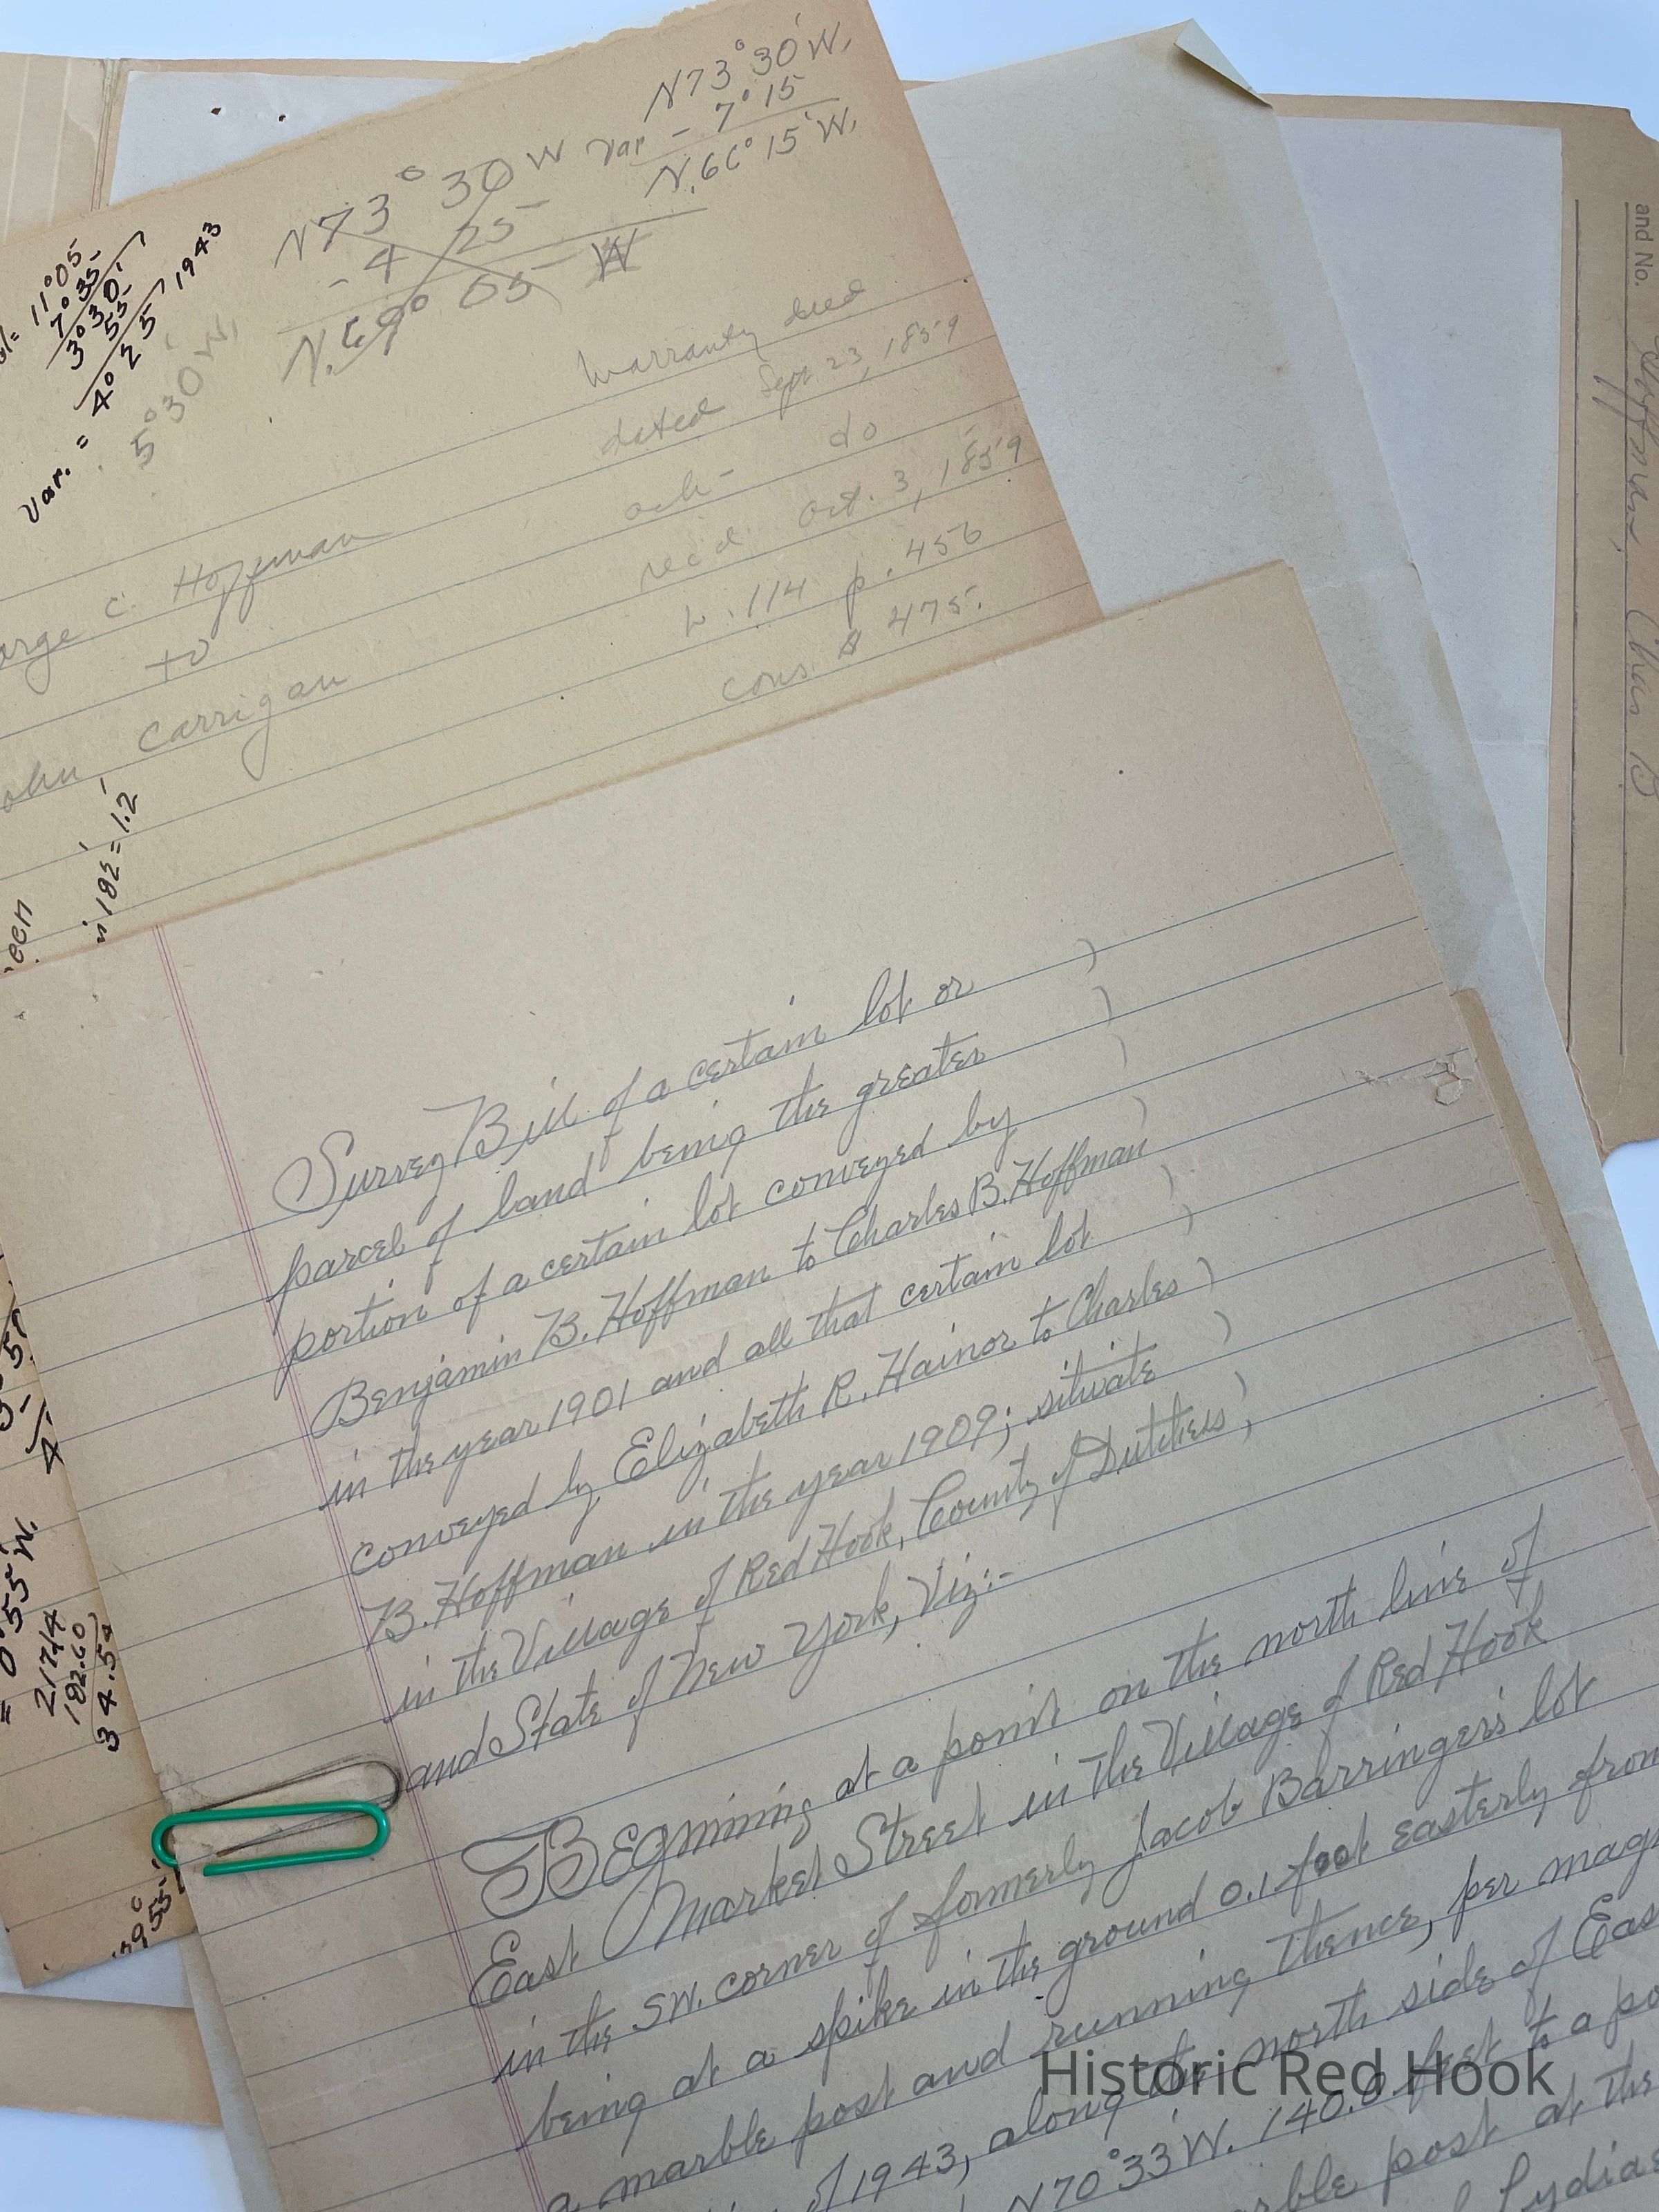 N73°30'W.
Var - 7°15
N.66°15'W.
N73° 30 W
- 4 25
N.69° 05 W
11°05
7°35
3°30'
55
Var. = 4°25' 1943
5°30'W.
Warranty deed
dated Sept 23, 1859
ack- do
C. Hoffman
rec'd Oct. 3, 1859
to
L. 114 p. 456
Carrigan
cons $ 475.
een
in 182'=1.2'
Survey Bill of a certain lot or )
parcel of land being the greater )
portion of a certain lot conveyed by )
Benjamin B. Hoffman to Charles B. Hoffman )
in the year 1901 and all that certain lot )
conveyed by Elizabeth R. Hainor to Charles )
B. Hoffman in the year 1909; situate )
in the Village of Red Hook, County of Dutchess, )
and State of New York, Viz:-
Beginning at a point on the north line of
East Market Street in the Village of Red Hook
in the SW. corner of formerly Jacob Barringer's lot
being at a spike in the ground 0.1 foot easterly from
a marble post and running thence, per mag
of 1943, along the north side of Eas
N70°33'W. 140.0 feet to a po
marble post at the
Lydia
= 0°55'W.
217.14
182.60
34.54
and No.
Hoffman, Chas B
Historic Red Hook